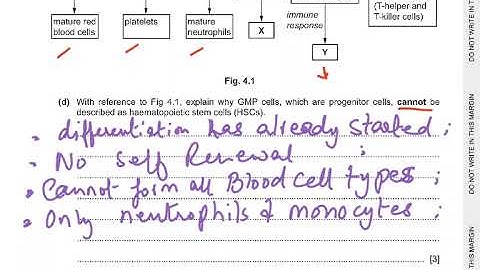 mature red
blood cells
platelets
mature
neutrophils
X
immune
response
Y
(T-helper and
T-killer cells)
Fig. 4.1
(d) With reference to Fig 4.1, explain why GMP cells, which are progenitor cells, cannot be
described as haematopoietic stem cells (HSCs).
differentiation has already started ;
No self Renewal ;
Cannot form all Blood cell types ;
Only neutrophils & monocytes ;
[3]
DO NOT WRITE IN T
DO NOT WRITE IN THIS MARGIN
THIS MARGIN